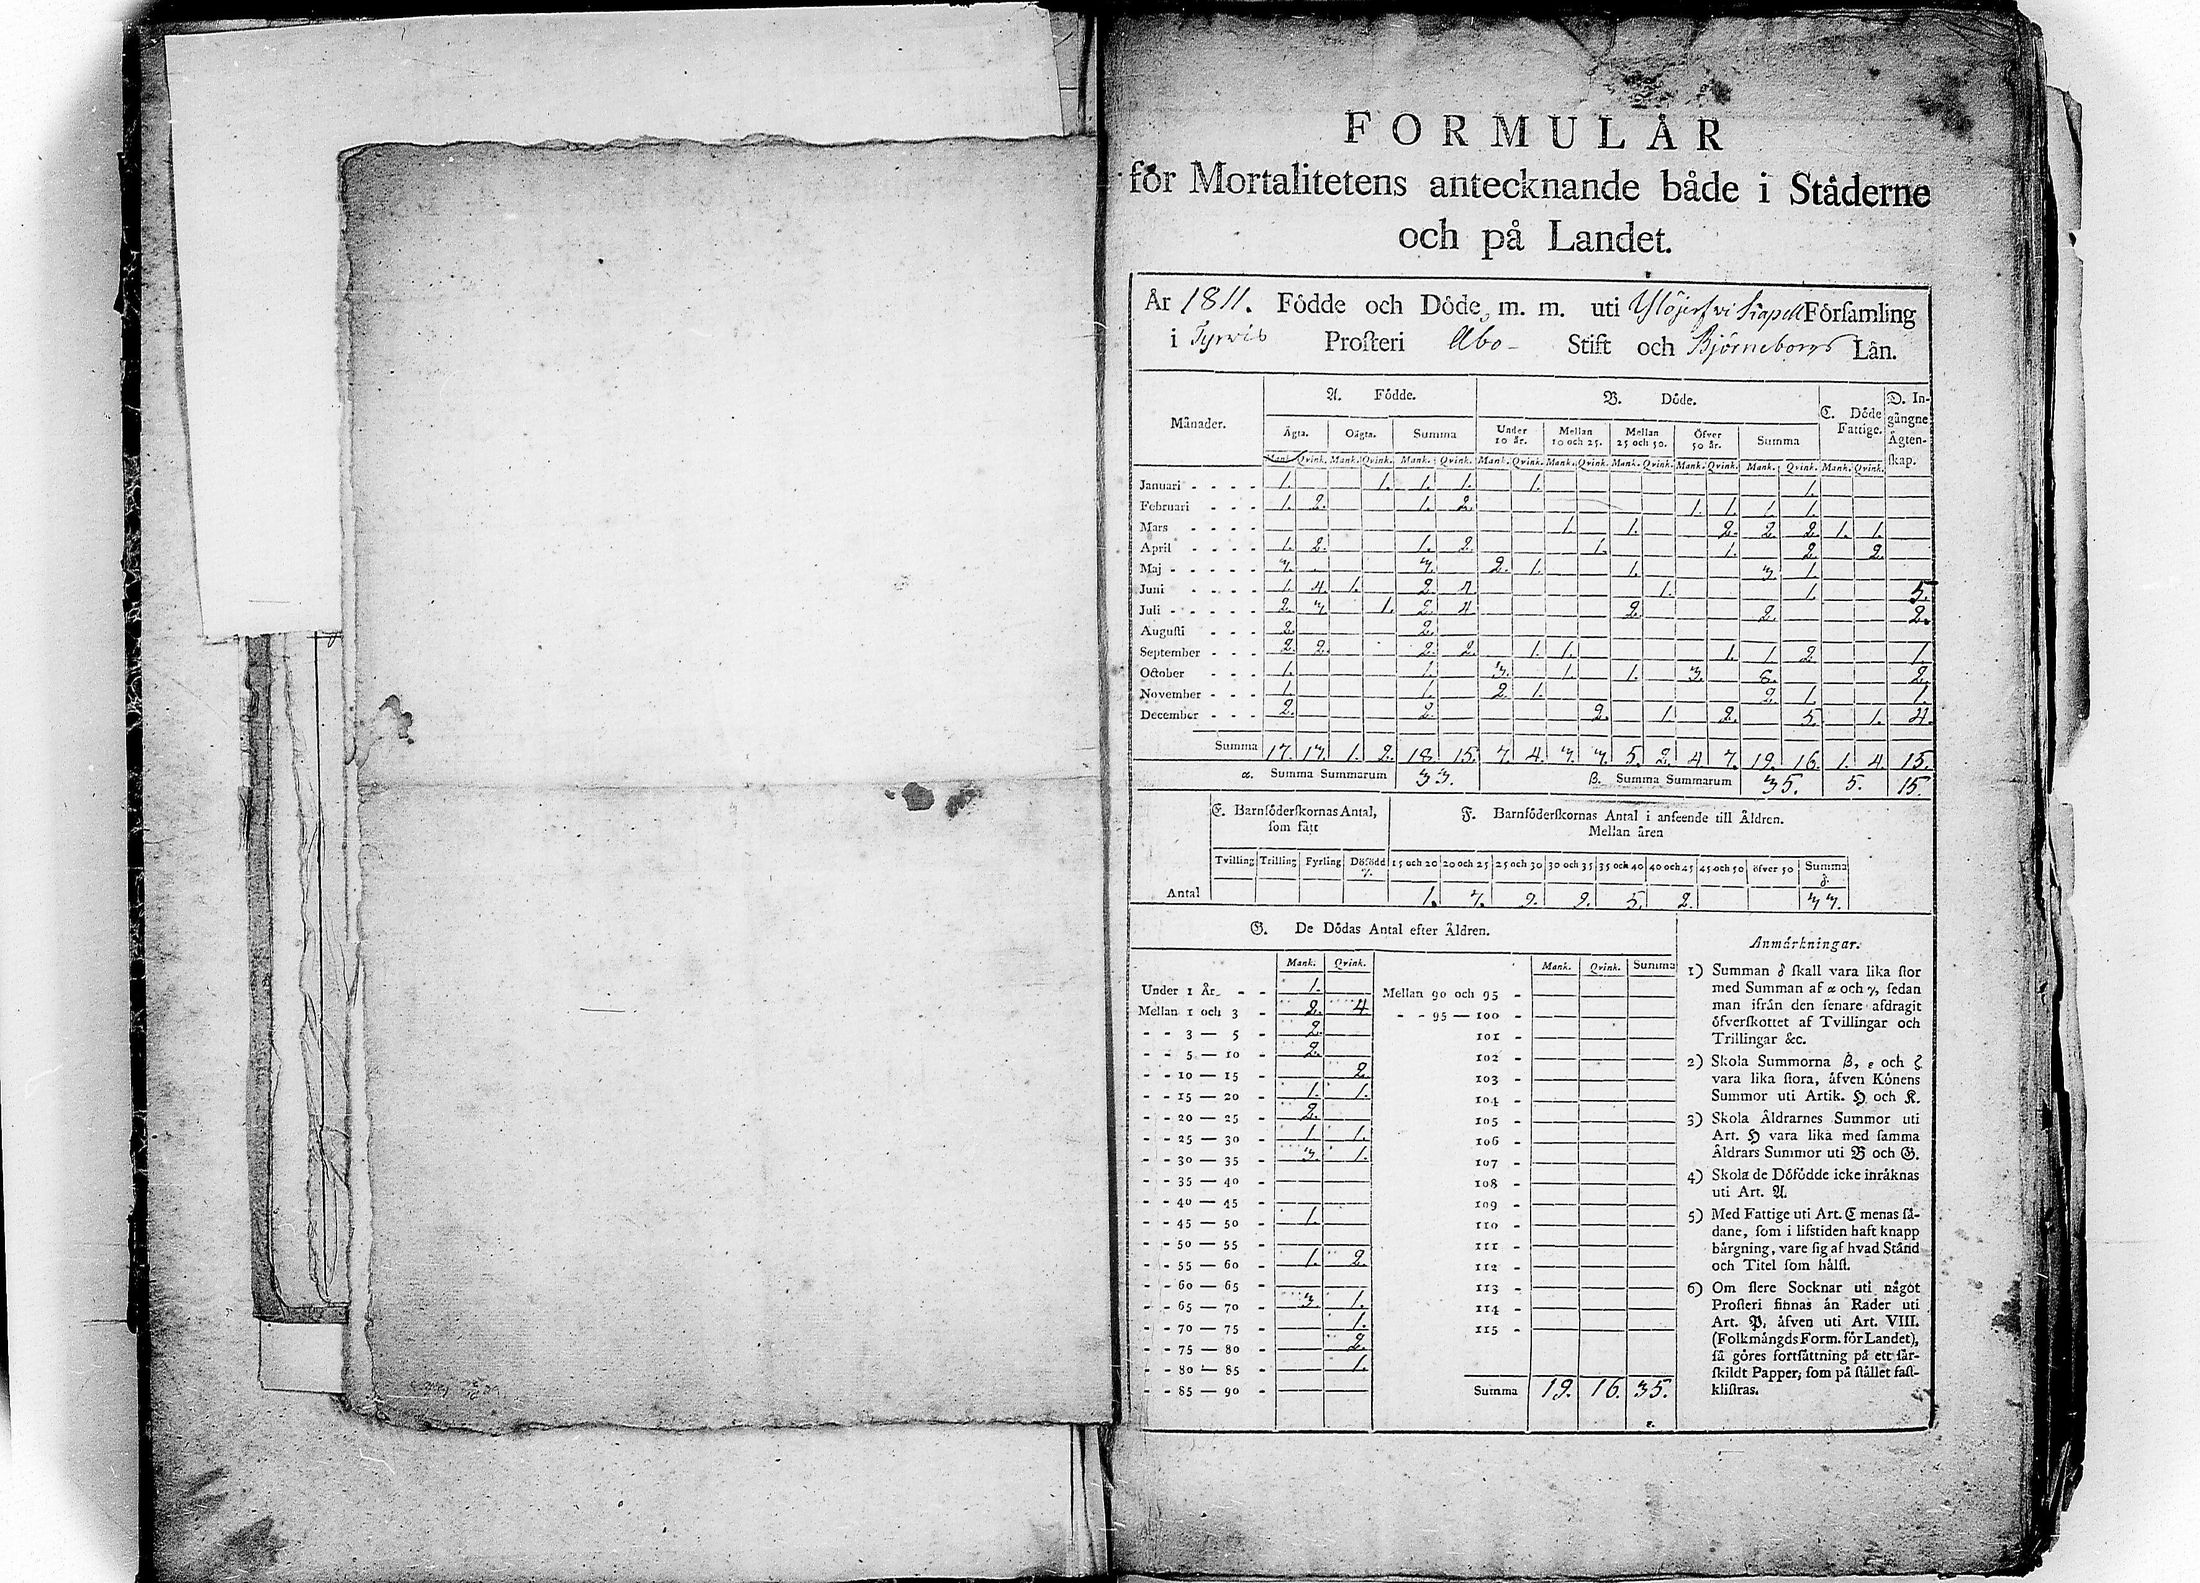 FORMULÅR
för Mortalitetens antecknande både i Ståderne
och på Landet.
År 1811. Födde och Döde, m. m. uti Ylöjerfvi Kapell Församling
i Tyrvis Prosteri Åbo Stift och Björneborgs Län.
Månader. A. Födde. B. Döde. C. Döde Fattige. D. Ingångne Ägtenskap.
Ägta. Oägta. Summa Under 10 år. Mellan 10 och 25. Mellan 25 och 50. Öfver 50 år. Summa
Mank. Qvink. Mank. Qvink. Mank. Qvink. Mank. Qvink. Mank. Qvink. Mank. Qvink. Mank. Qvink. Mank. Qvink. Mank. Qvink.
Januari - - - - 1. 1. 1. 1. 1. 1.
Februari - - - 1. 2. 1. 2. 1. 1. 1. 1.
Mars - - - - 1. 1. 2. 2. 2. 1. 1.
April - - - - 1. 2. 1. 2. 1. 1. 2. 2.
Maj - - - - - 3. 3. 2. 1. 1. 3. 1.
Juni - - - - 1. 4. 1. 2. 4. 1. 1. 5.
Juli - - - - - 2. 3. 1. 2. 4. 2. 2. 2.
Augusti - - - 2. 2.
September - - - 2. 2. 2. 2. 1. 1. 1. 1. 2. 1.
October - - - 1. 1. 3. 1. 1. 3. 8. 2.
November - - - 1. 1. 2. 1. 2. 1. 1.
December - - - 2. 2. 2. 1. 2. 5. 1. 4.
Summa 17. 13. 1. 2. 18. 15. 7. 4. 3. 3. 5. 2. 4. 7. 19. 16. 1. 4. 15.
α. Summa Summarum 33. β. Summa Summarum 35. 5. 15.
E. Barnföderskornas Antal, som fått
F. Barnföderskornas Antal i anseende till Åldren.
Mellan åren
Tvilling Trilling Fyrling Döfödd γ. 15 och 20 20 och 25 25 och 30 30 och 35 35 och 40 40 och 45 45 och 50 öfver 50 Summa δ.
Antal 1. 7. 9. 9. 5. 2. 33.
G. De Dödas Antal efter Åldren.
Mank. Qvink.
Under 1 År. - - 1.
Mellan 1 och 3 - 2. 4
- - 3 — 5 - 2.
- - 5 — 10 - 2.
- - 10 — 15 - 2.
- - 15 — 20 - 1. 1.
- - 20 — 25 - 2.
- - 25 — 30 - 1. 1.
- - 30 — 35 - 3. 1.
- - 35 — 40 -
- - 40 — 45 -
- - 45 — 50 - 1.
- - 50 — 55 -
- - 55 — 60 - 1. 2.
- - 60 — 65 -
- - 65 — 70 - 3. 1.
- - 70 — 75 - 1.
- - 75 — 80 - 2.
- - 80 — 85 - 1.
- - 85 — 90 -
Mank. Qvink. Summa
Mellan 90 och 95 -
- - 95 — 100 -
101 -
102 -
103 -
104 -
105 -
106 -
107 -
108 -
109 -
110 -
111 -
112 -
113 -
114 -
115 -
Summa 19. 16. 35.
ε.
Anmärkningar.
1) Summan δ skall vara lika stor
med Summan af α och γ, sedan
man ifrån den senare afdragit
öfverskottet af Tvillingar och
Trillingar &c.
2) Skola Summorna β, ε och ζ
vara lika stora, åfven Könens
Summor uti Artik. H och K.
3) Skola Åldrarnes Summor uti
Art. H vara lika med samma
Åldrars Summor uti B och G.
4) Skola de Döfödde icke inräknas
uti Art. A.
5) Med Fattige uti Art. C menas så-
dane, som i lifstiden haft knapp
bårgning, vare sig af hvad Stånd
och Titel som hålst.
6) Om flere Socknar uti något
Prosteri finnas än Rader uti
Art. P, åfven uti Art. VIII.
(Folkmångds Form. för Landet),
så göres fortsåttning på ett sår-
skildt Papper, som på stället fast-
klistras.